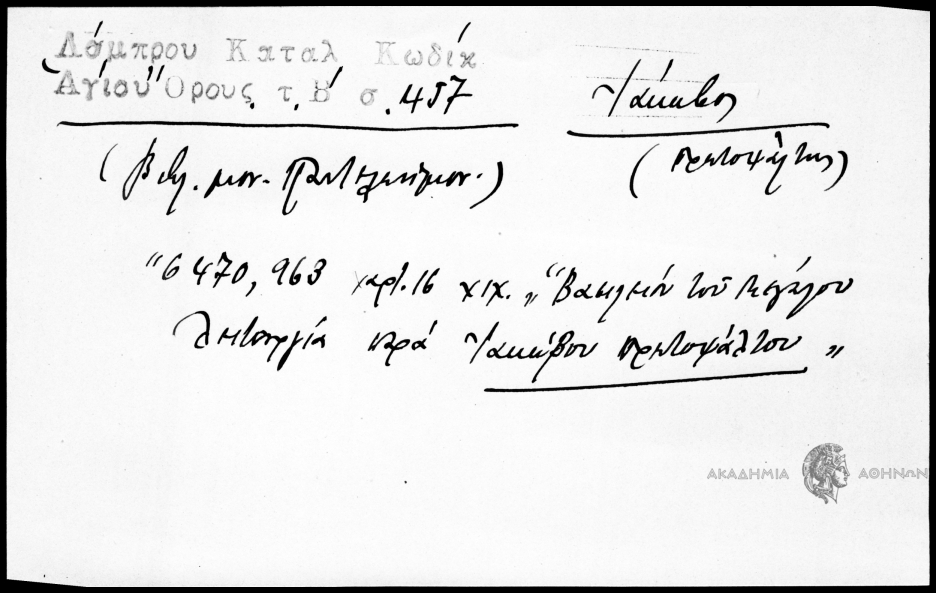 Λάμπρου Καταλ Κωδίκ
Ἁγίου Ὄρους τ. Β΄ σ. 457
Ἰάκωβος
(Βιβλ. μον. Παντελεήμον.)
(πρωτοψάλτης)
"6470, 963 χαρτ. 16 ΧΙΧ. "Βασιλείου τοῦ Μεγάλου
λειτουργία παρά Ἰακώβου πρωτοψάλτου"
ΑΚΑΔΗΜΙΑ ΑΘΗΝΩΝ